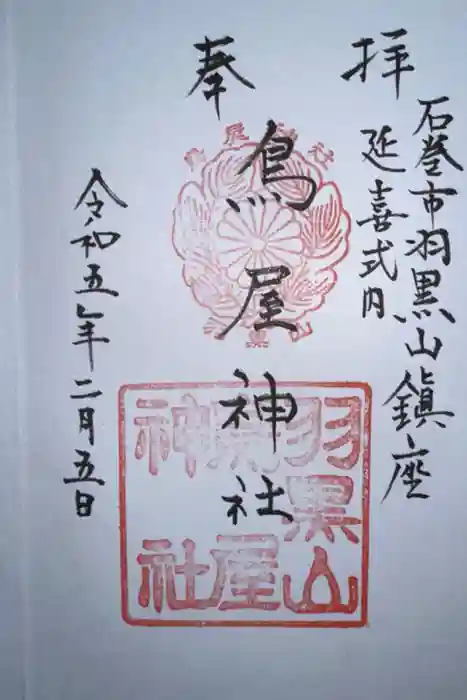 奉
拝
石巻市羽黒山鎮座
延喜式内
鳥屋神社
令和五年二月五日
羽黒山
鳥屋
神社